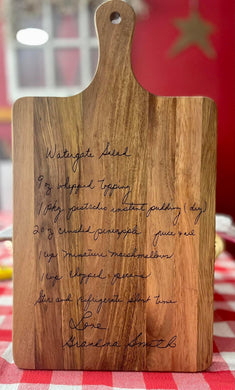 Watergate Salad
9 oz whipped topping
1 pkg pistachio instant pudding (dry)
20 oz crushed pineapple juice & all
1 cup miniature marshmallows
1 cup chopped pecans
Stir and refrigerate short time
Love
Grandma Smith